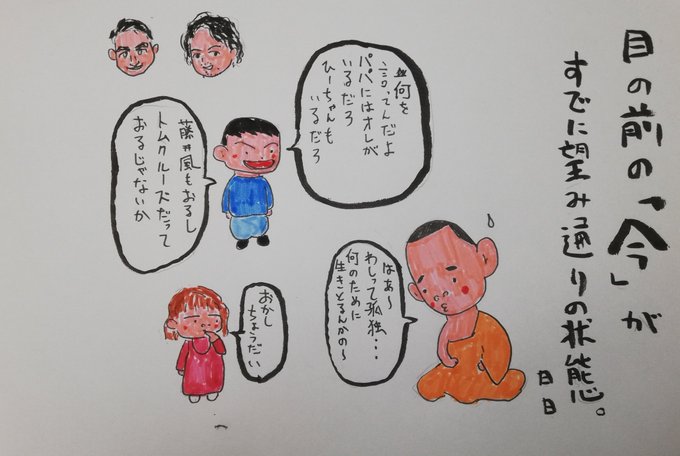 目の前の「今」が
すでに望み通りの状態。
日日
何を
言ってんだよ
パパにはオレが
いるだろ
ひーちゃんも
いるだろ
藤井風もおるし
トムクルーズだって
おるじゃないか
はぁ〜
わしって孤独・・・
何のために
生きとるんかの〜
おかし
ちょうだい